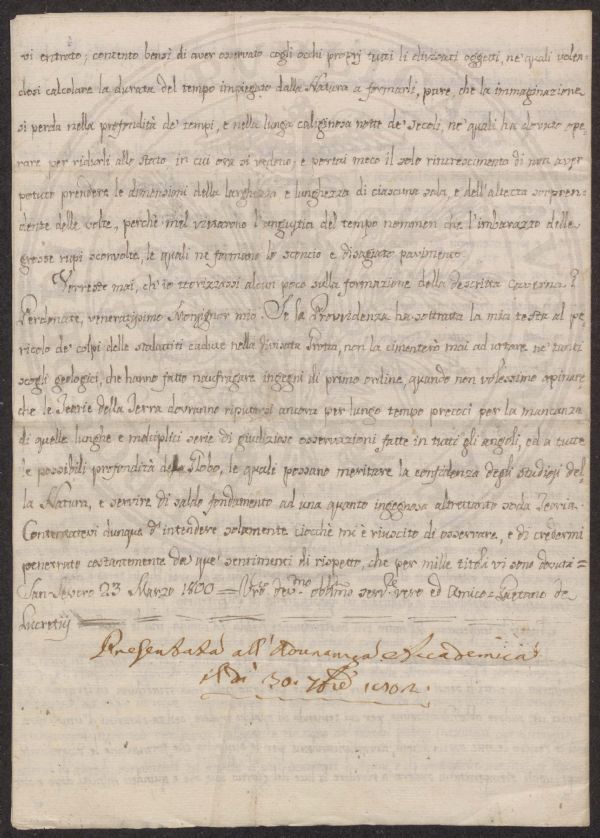 vi entrato; contento bensì di aver osservato cogli occhi proprj tutti li divisati oggetti, ne' quali volen=
dosi calcolare la durata del tempo impiegato dalla Natura a formarli, pare, che la immaginazione
si perda nella profondità de' tempi, e nella lunga caliginosa notte de' secoli, ne' quali ha dovuto ope=
rare per ridurli allo stato in cui ora si vedono, e portai meco il solo rincrescimento di non aver
potuto prendere le dimensioni della larghezza e lunghezza di ciascuna sala, e dell'altezza sorpren=
dente delle volte, perchè mel vietarono l'angustia del tempo nommen che l'imbarazzo delle
grosse rupi sconvolte, le quali ne formano lo sconcio e disagiato pavimento.
Vorreste mai, ch'io teorizzassi alcun poco sulla formazione della descritta Caverna?
Perdonate, veneratissimo Monsignor mio. Se la Provvidenza ha sottratta la mia testa al pe=
ricolo de' colpi delle stalattiti cadute nella divisata Grotta, non la cimenterò mai ad urtare ne' tanti
scogli geologici, che hanno fatto naufragare ingegni di primo ordine, quando non volessimo opinare,
che le Teorie della Terra dovranno riputarsi ancora per lungo tempo precoci per la mancanza
di quelle lunghe e moltiplici serie di giudiziose osservazioni fatte in tutti gli angoli, ed a tutte
le possibili profondità del Globo, le quali possano meritare la confidenza degli studiosi del=
la Natura, e servire di saldo fondamento ad una quanto ingegnosa altrettanto soda Teoria.
Contentatevi dunque d'intendere solamente ciocchè m'è riuscito di osservare, e di credermi
penetrato costantemente da que' sentimenti di rispetto, che per mille titoli vi sono dovuti =
San Severo 23 Marzo 1800 = Vro. devmo. obblmo. servre. vero ed Amico = Gaetano de
Lucretij
Presentata all'Adunanza Accademica
il dì 30. 7bre 1802.